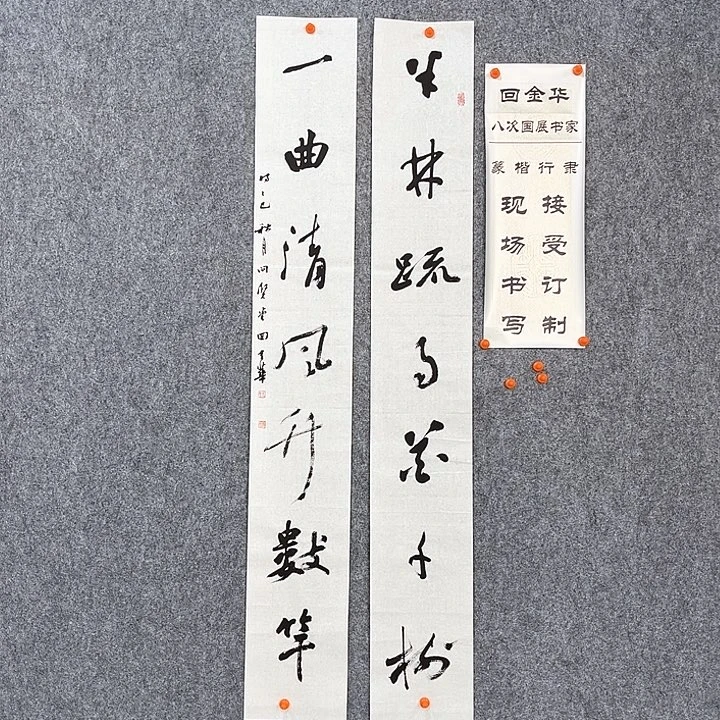 半林疏雨花千树
一曲清風竹數竿
乙巳秋月回金華
回金华
八次国展书家
篆楷行隶
接受订制
现场书写